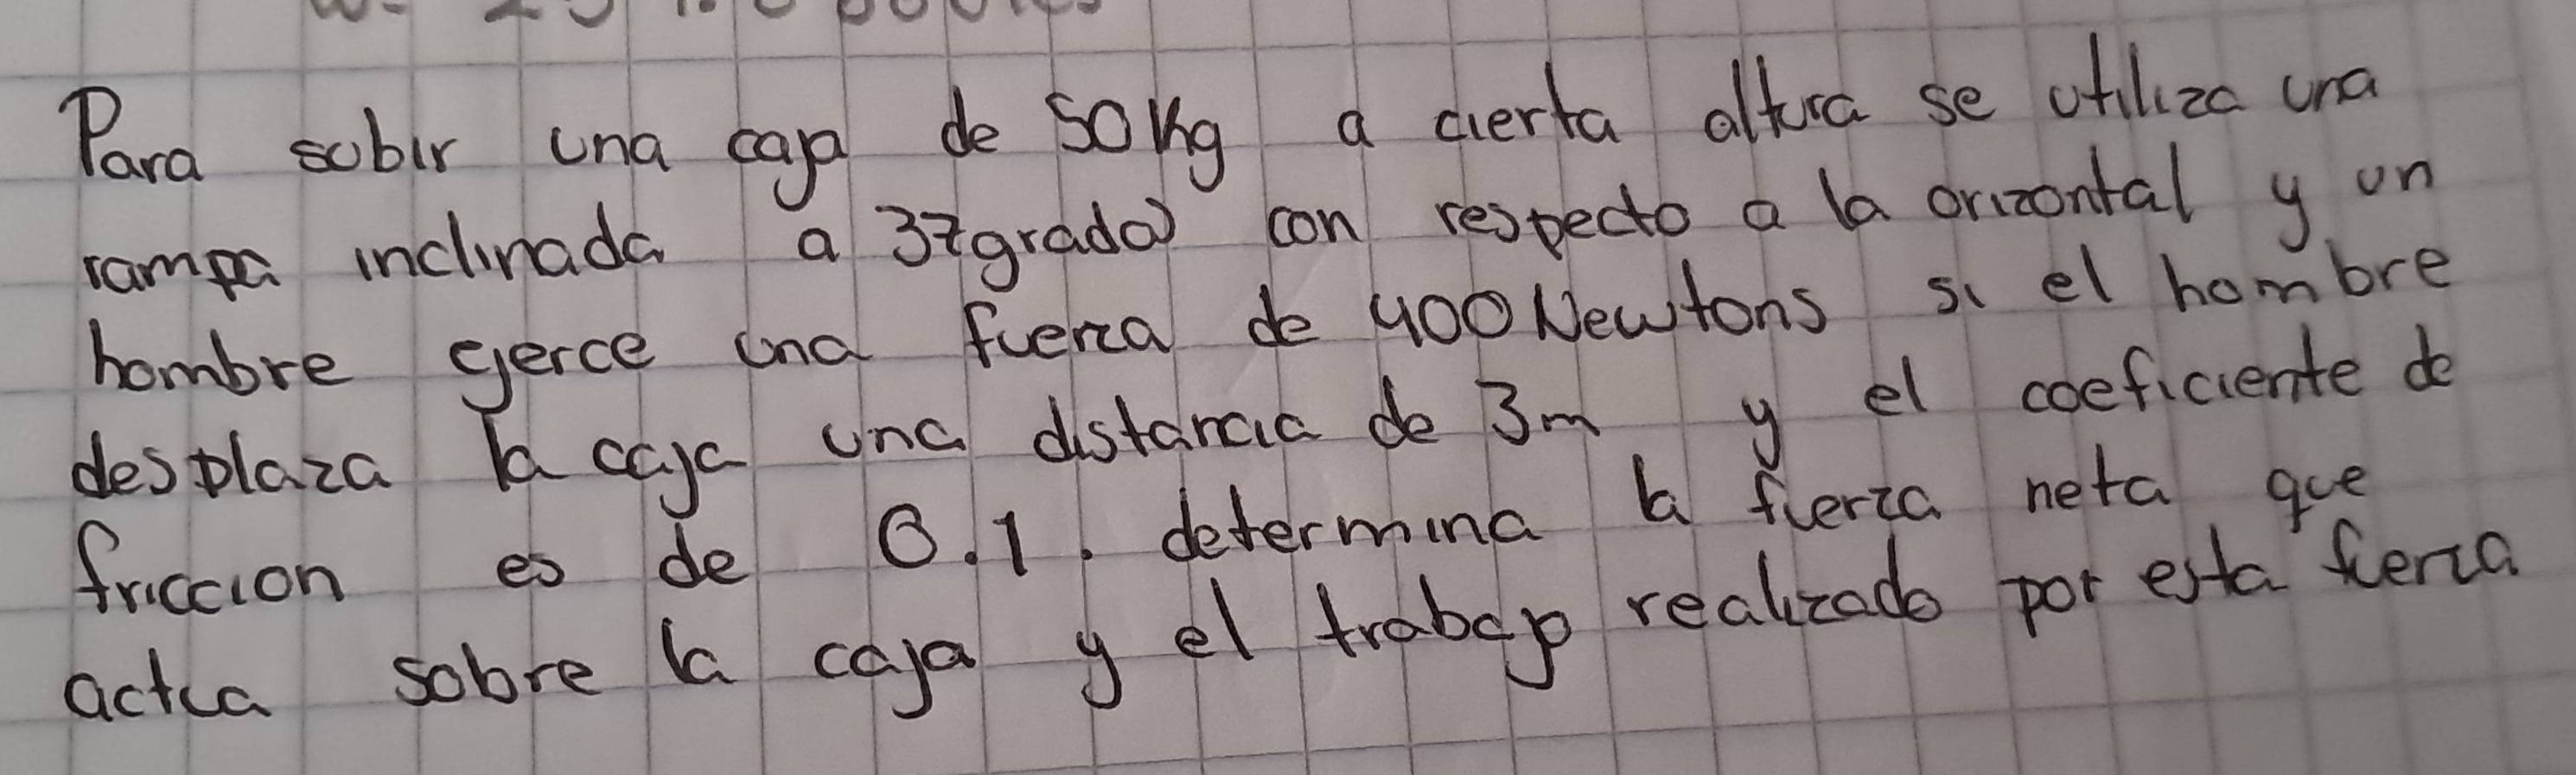 Para subir una caja de 50kg a cierta altura se utiliza una
rampa inclinada a 37grados con respecto a la orizontal y un
hombre ejerce una fuerza de 400 Newtons si el hombre
desplaza la caja una distancia de 3m y el coeficiente de
friccion es de 0.1. determina la fuerza neta que
actua sobre la caja y el trabajo realizado por esta fuerza